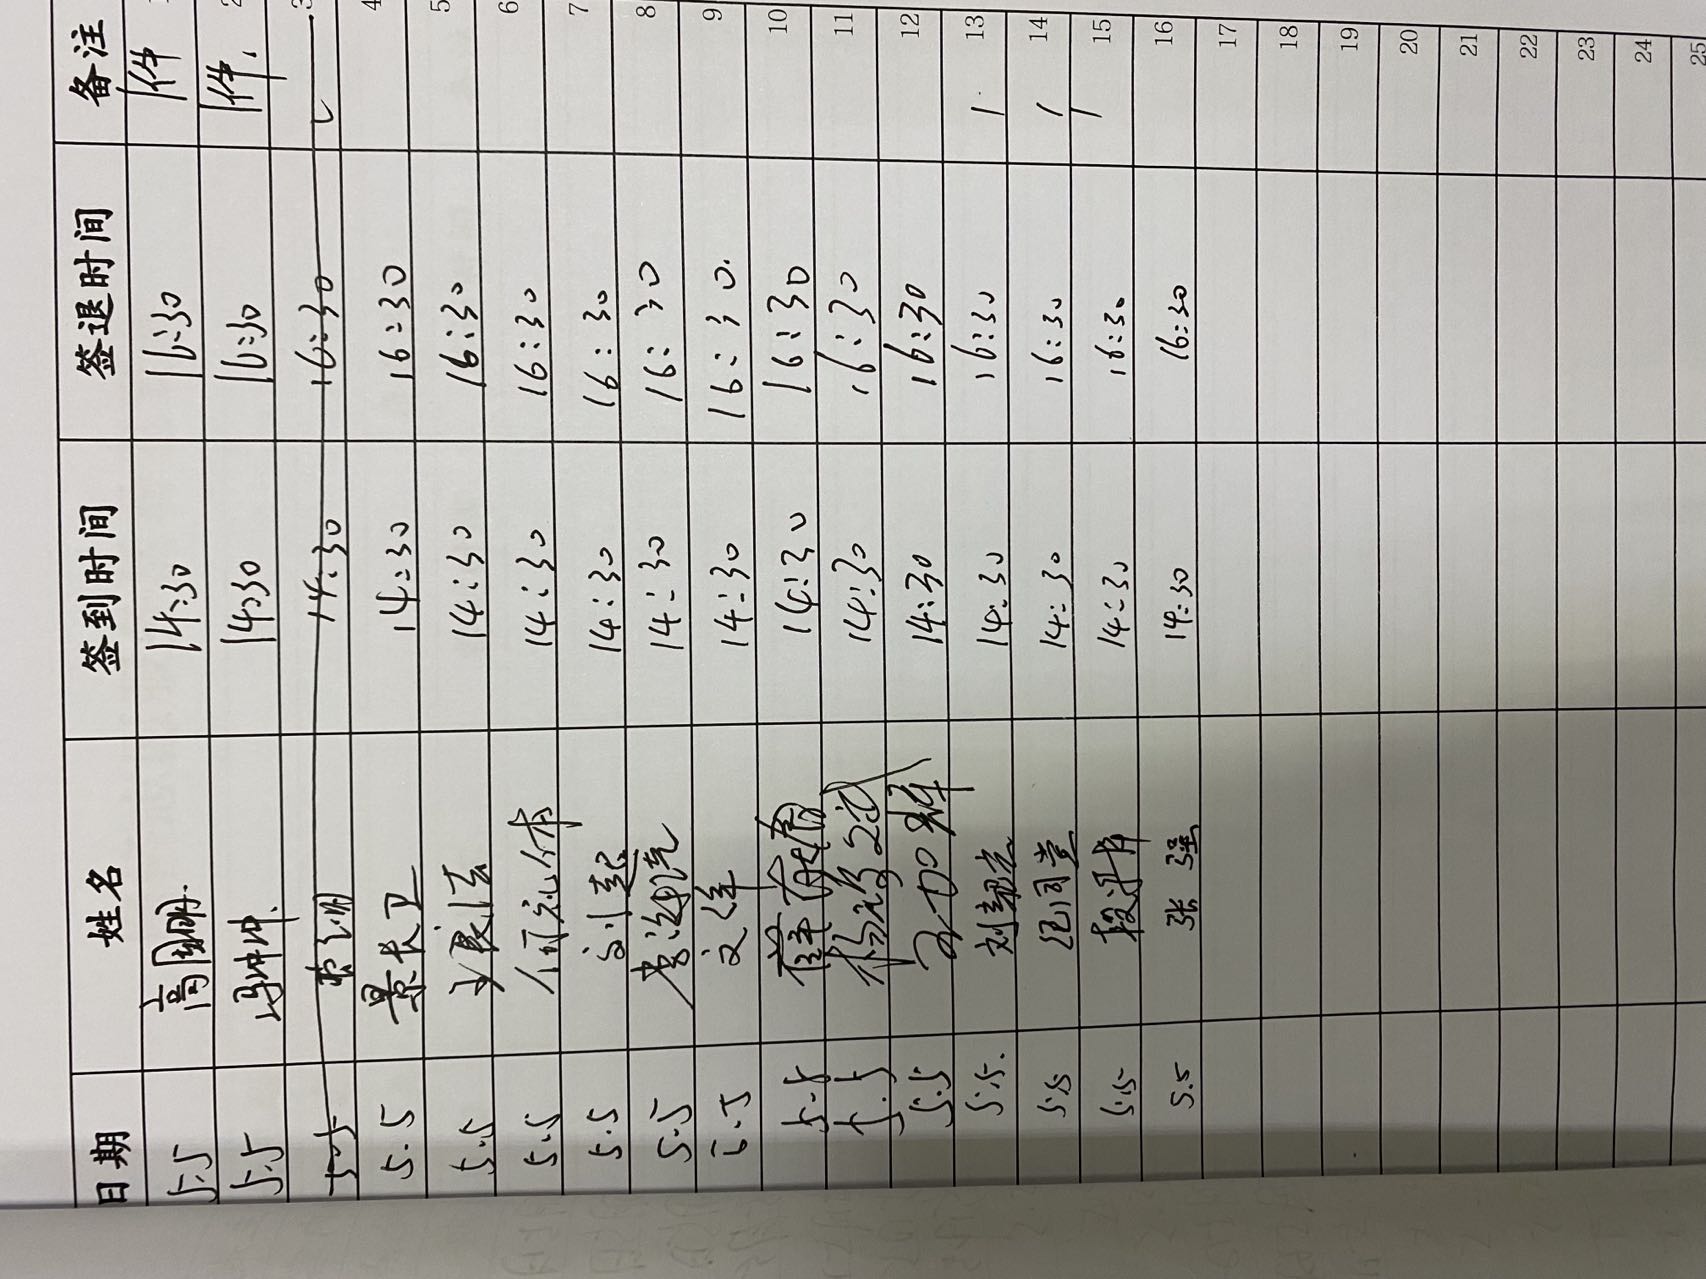 日期 姓名 签到时间 签退时间 备注
5.5 高国明. 14:30 16:30 1件 1
5.5 冯冲冲. 14:30 16:30 1件. 2
5.5 14:30 16:30 3
5.5 景长卫 14:30 16:30 4
5.5 14:30 16:30 5
5.5 14:30 16:30 6
5.5 刘起 14:30 16:30 7
5.5 14:30 16:30 8
5.5 14:30 16:30. 9
5.5 14:30 16:30 10
5.5 14:30 16:30 11
5.5 14:30 16:30 12
5.5. 14:30 16:30 1 13
5.5 14:30 16:30 1 14
5.5 14:30 16:30 1 15
5.5 张强 14:30 16:30 16
17
18
19
20
21
22
23
24
25